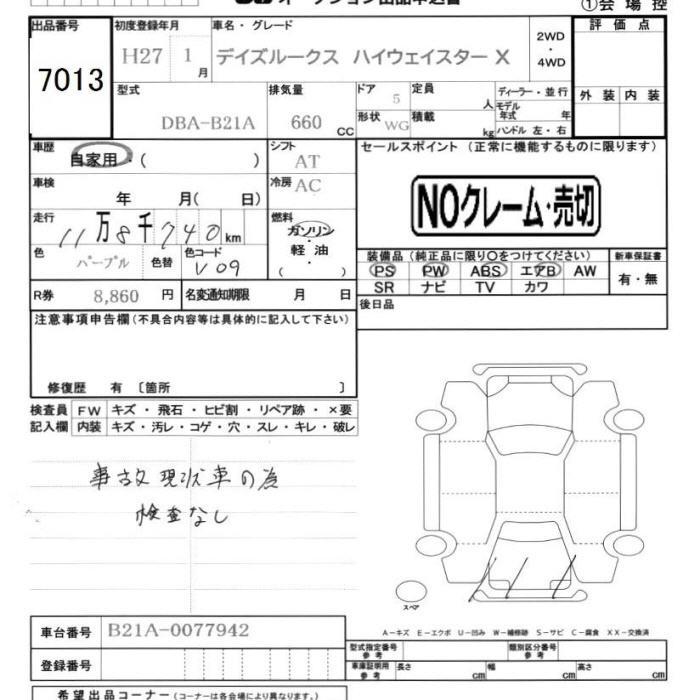 オークション出品申込書
①会場控
出品番号 初度登録年月 車名・グレード 評価点
7013 H27 1月 デイズルークス ハイウェイスター X 2WD・4WD
型式 排気量 ドア 定員 ディーラー・並行 外装 内装
DBA-B21A 660 CC 5 人 モデル年式 年
形状 WG 積載 kg ハンドル 左・右
車歴 自家用・( ) シフト AT セールスポイント (正常に機能するものに限ります)
車検 年 月(日) 冷房 AC
NOクレーム・売切
走行 11万8千740km 燃料 ガソリン・軽油・( )
色 パープル 色替 色コード V09
装備品 (純正品に限り○をつけてください) 新車保証書
PS PW ABS エアB AW 有・無
SR ナビ TV カワ
R券 8,860円 名変通知期限 月 日 後日品
注意事項申告欄 (不具合内容等は具体的に記入して下さい)
修復歴 有 〔箇所 〕
検査員 FW キズ・飛石・ヒビ割・リペア跡・×要
記入欄 内装 キズ・汚レ・コゲ・穴・スレ・キレ・破レ
事故現状車の為
検査なし
スペア
A-キズ E-エクボ U-凹み W-補修跡 S-サビ C-腐食 XX-交換済
車台番号 B21A-0077942
型式指定番号 参考 類別区分番号 参考
登録番号
車庫証明用 参考 長さ cm 幅 cm 高さ cm
希望出品コーナー (コーナーは各会場により異なります。)